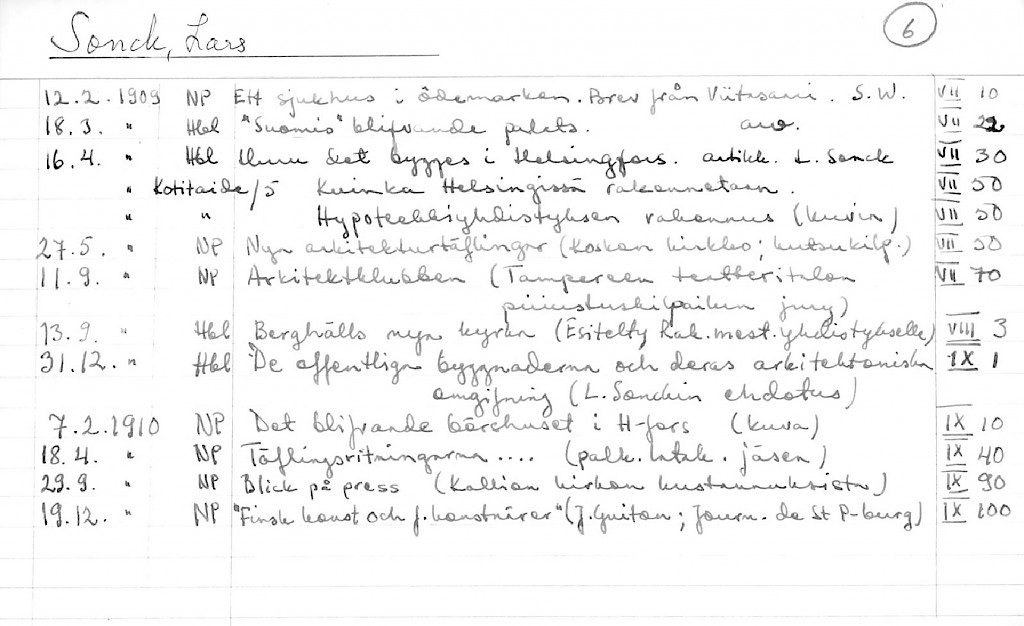 Sonck, Lars
6
12.2.1909 NP Ett sjukhus i ödemarken. Brev från Viitasaari. S.W. VII 10
18.3. " Hbl "Suomis" blifvande palats. VII
16.4. " Hbl Huru det bygges i Helsingfors. artikk. L. Sonck VII 30
" Kotitaide/5 Kuinka Helsingissä rakennetaan. VII 50
" " Hypoteekkiyhdistyksen rakennus (kuvin) VII 50
27.5. " NP Nya arkitekturtäflingar (Kosken kirkko; kutsukilp.) VII 50
11.9. " NP Arkitektklubben (Tampereen teatteritalon VII 70
piirustuskilpailun jury)
13.9. " Hbl Berghälls nya kyrka (Esitelty Rak.mest.yhdistykselle) VIII 3
31.12. " Hbl "De offentliga byggnaderna och deras arkitektoniska IX 1
omgifning (L. Sonckin ehdotus)
7.2.1910 NP Det blifvande börshuset i H-fors (kuva) IX 10
18.4. " NP Täflingsritningarna .... (palk. jäsen) IX 40
29.9. " NP Blick på press (Kallion kirkon kustannuksista) IX 90
19.12. " NP "Finsk konst och f. konstnärer" (J. Guiton; Journ. de St P-burg) IX 100